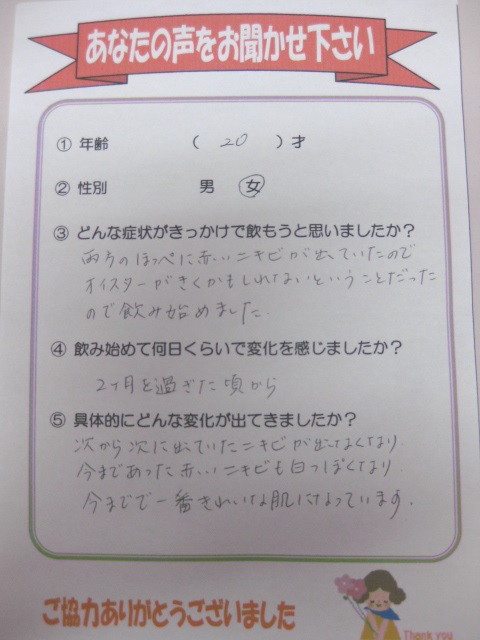 あなたの声をお聞かせ下さい
① 年齢 ( 20 )才
② 性別 男 女
③ どんな症状がきっかけで飲もうと思いましたか？
両方のほっぺに赤いニキビが出ていたので
オイスターがきくかもしれないということだった
ので飲み始めました.
④ 飲み始めて何日くらいで変化を感じましたか？
2ヶ月を過ぎた頃から
⑤ 具体的にどんな変化が出てきましたか？
次から次に出ていたニキビが出なくなり
今まであった赤いニキビも白っぽくなり
今までで一番きれいな肌になっています.
ご協力ありがとうございました
Thank you